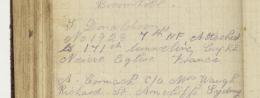 J Donaldson
No 1929 7th NF Attached
to 171st Tunneling Coy RE
Neuve Eglise France
A. Cormack c/o Mrs Waugh
Richard St. Arncliffe Sydney